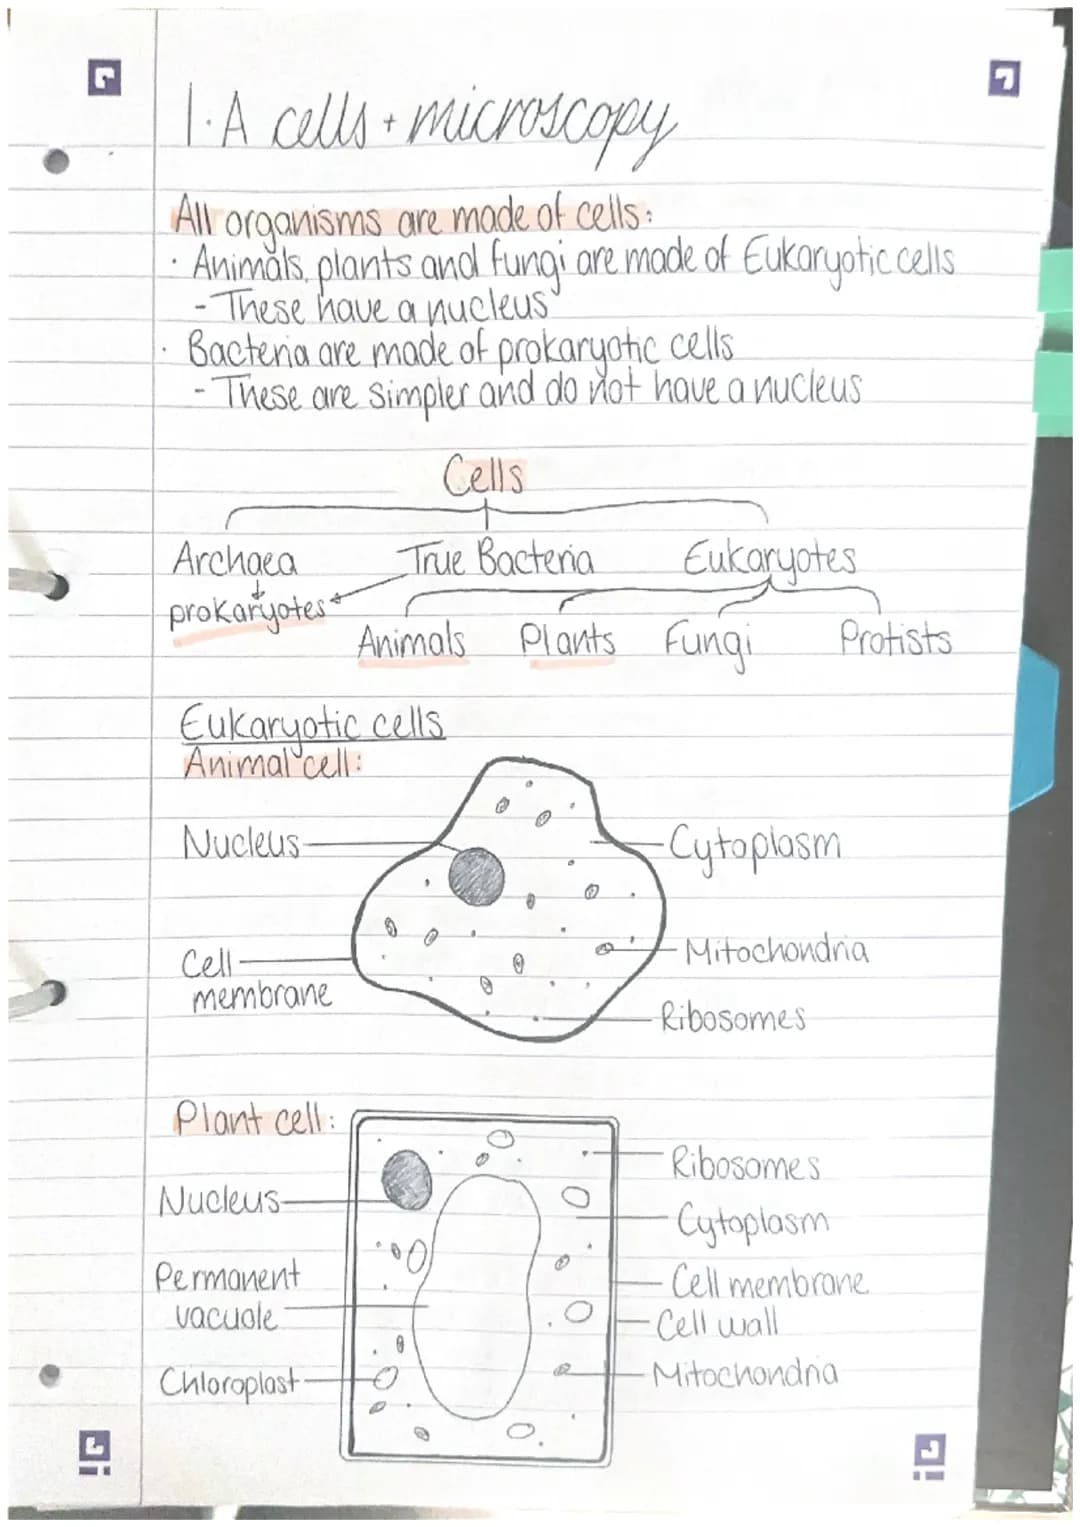 1.A cells + microscopy
All organisms are made of cells:
· Animals, plants and fungi are made of Eukaryotic cells
- These have a nucleus
· Bacteria are made of prokaryotic cells
- These are simpler and do not have a nucleus
Cells
Archaea True Bacteria Eukaryotes
prokaryotes
Animals Plants Fungi Protists
Eukaryotic cells
Animal cell:
Nucleus
Cytoplasm
Cell
membrane
Mitochondria
Ribosomes
Plant cell:
Nucleus
Permanent
vacuole
Chloroplast
Ribosomes
Cytoplasm
Cell membrane
Cell wall
Mitochondria